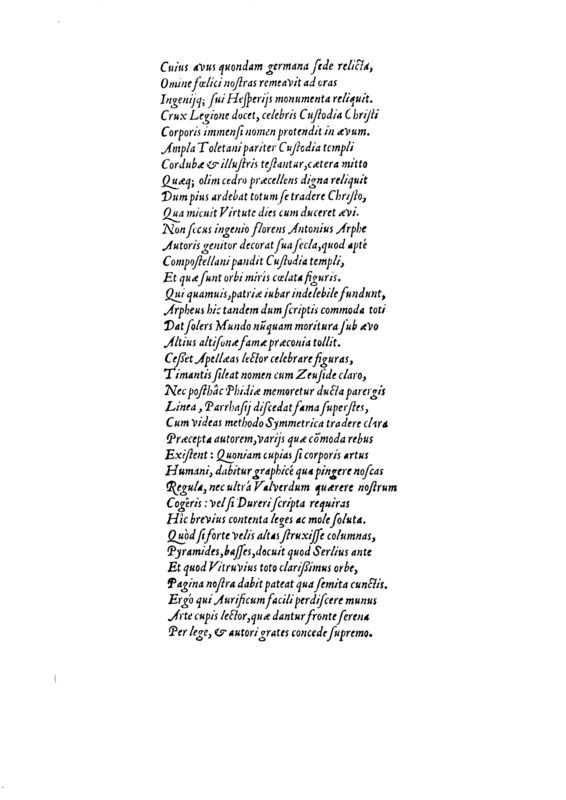 Cuius avus quondam germana ſede relicta,
Omine fœlici noſtras remeavit ad oras
Ingenijq; ſui Heſperijs monumenta reliquit.
Crux Legione docet, celebris Cuſtodia Chriſti
Corporis immenſi nomen protendit in ævum.
Ampla Toletani pariter Cuſtodia templi
Cordubæ & illuſtris teſtantur, cætera mitto
Quæq; olim cedro præcellens digna reliquit
Dum pius ardebat totum ſe tradere Chriſto,
Qua micuit Virtute dies cum duceret ævi.
Non ſecus ingenio florens Antonius Arphe
Autoris genitor decorat ſua ſecla, quod aptè
Compoſtellani pandit Cuſtodia templi,
Et quæ ſunt orbi miris cœlata figuris.
Qui quamuis, patriæ iubar indelebile fundunt,
Arpheus hic tandem dum ſcriptis commoda toti
Dat ſolers Mundo nũquam moritura ſub ævo
Altius altiſonæ famæ præconia tollit.
Ceſſet Apellæas lector celebrare figuras,
Timantis ſileat nomen cum Zeuſide claro,
Nec poſthâc Phidiæ memoretur ducta parergis
Linea, Parrhaſij diſcedat fama ſuperſtes,
Cum videas methodo Symmetrica tradere clara
Præcepta autorem, varijs quæ cõmoda rebus
Exiſtent: Quoniam cupias ſi corporis artus
Humani, dabitur graphicé qua pingere noſcas
Regula, nec ultrá Valverdum quærere noſtrum
Cogêris: vel ſi Dureri ſcripta requiras
Hîc brevius contenta leges ac mole ſoluta.
Quòd ſi forte velis altas ſtruxiſſe columnas,
Pyramides, baſſes, docuit quod Serlius ante
Et quod Vitruvius toto clariſſimus orbe,
Pagina noſtra dabit pateat qua ſemita cunctis.
Ergò qui Aurificum facili perdiſcere munus
Arte cupis lector, quæ dantur fronte ſerena
Per lege, & autori grates concede ſupremo.